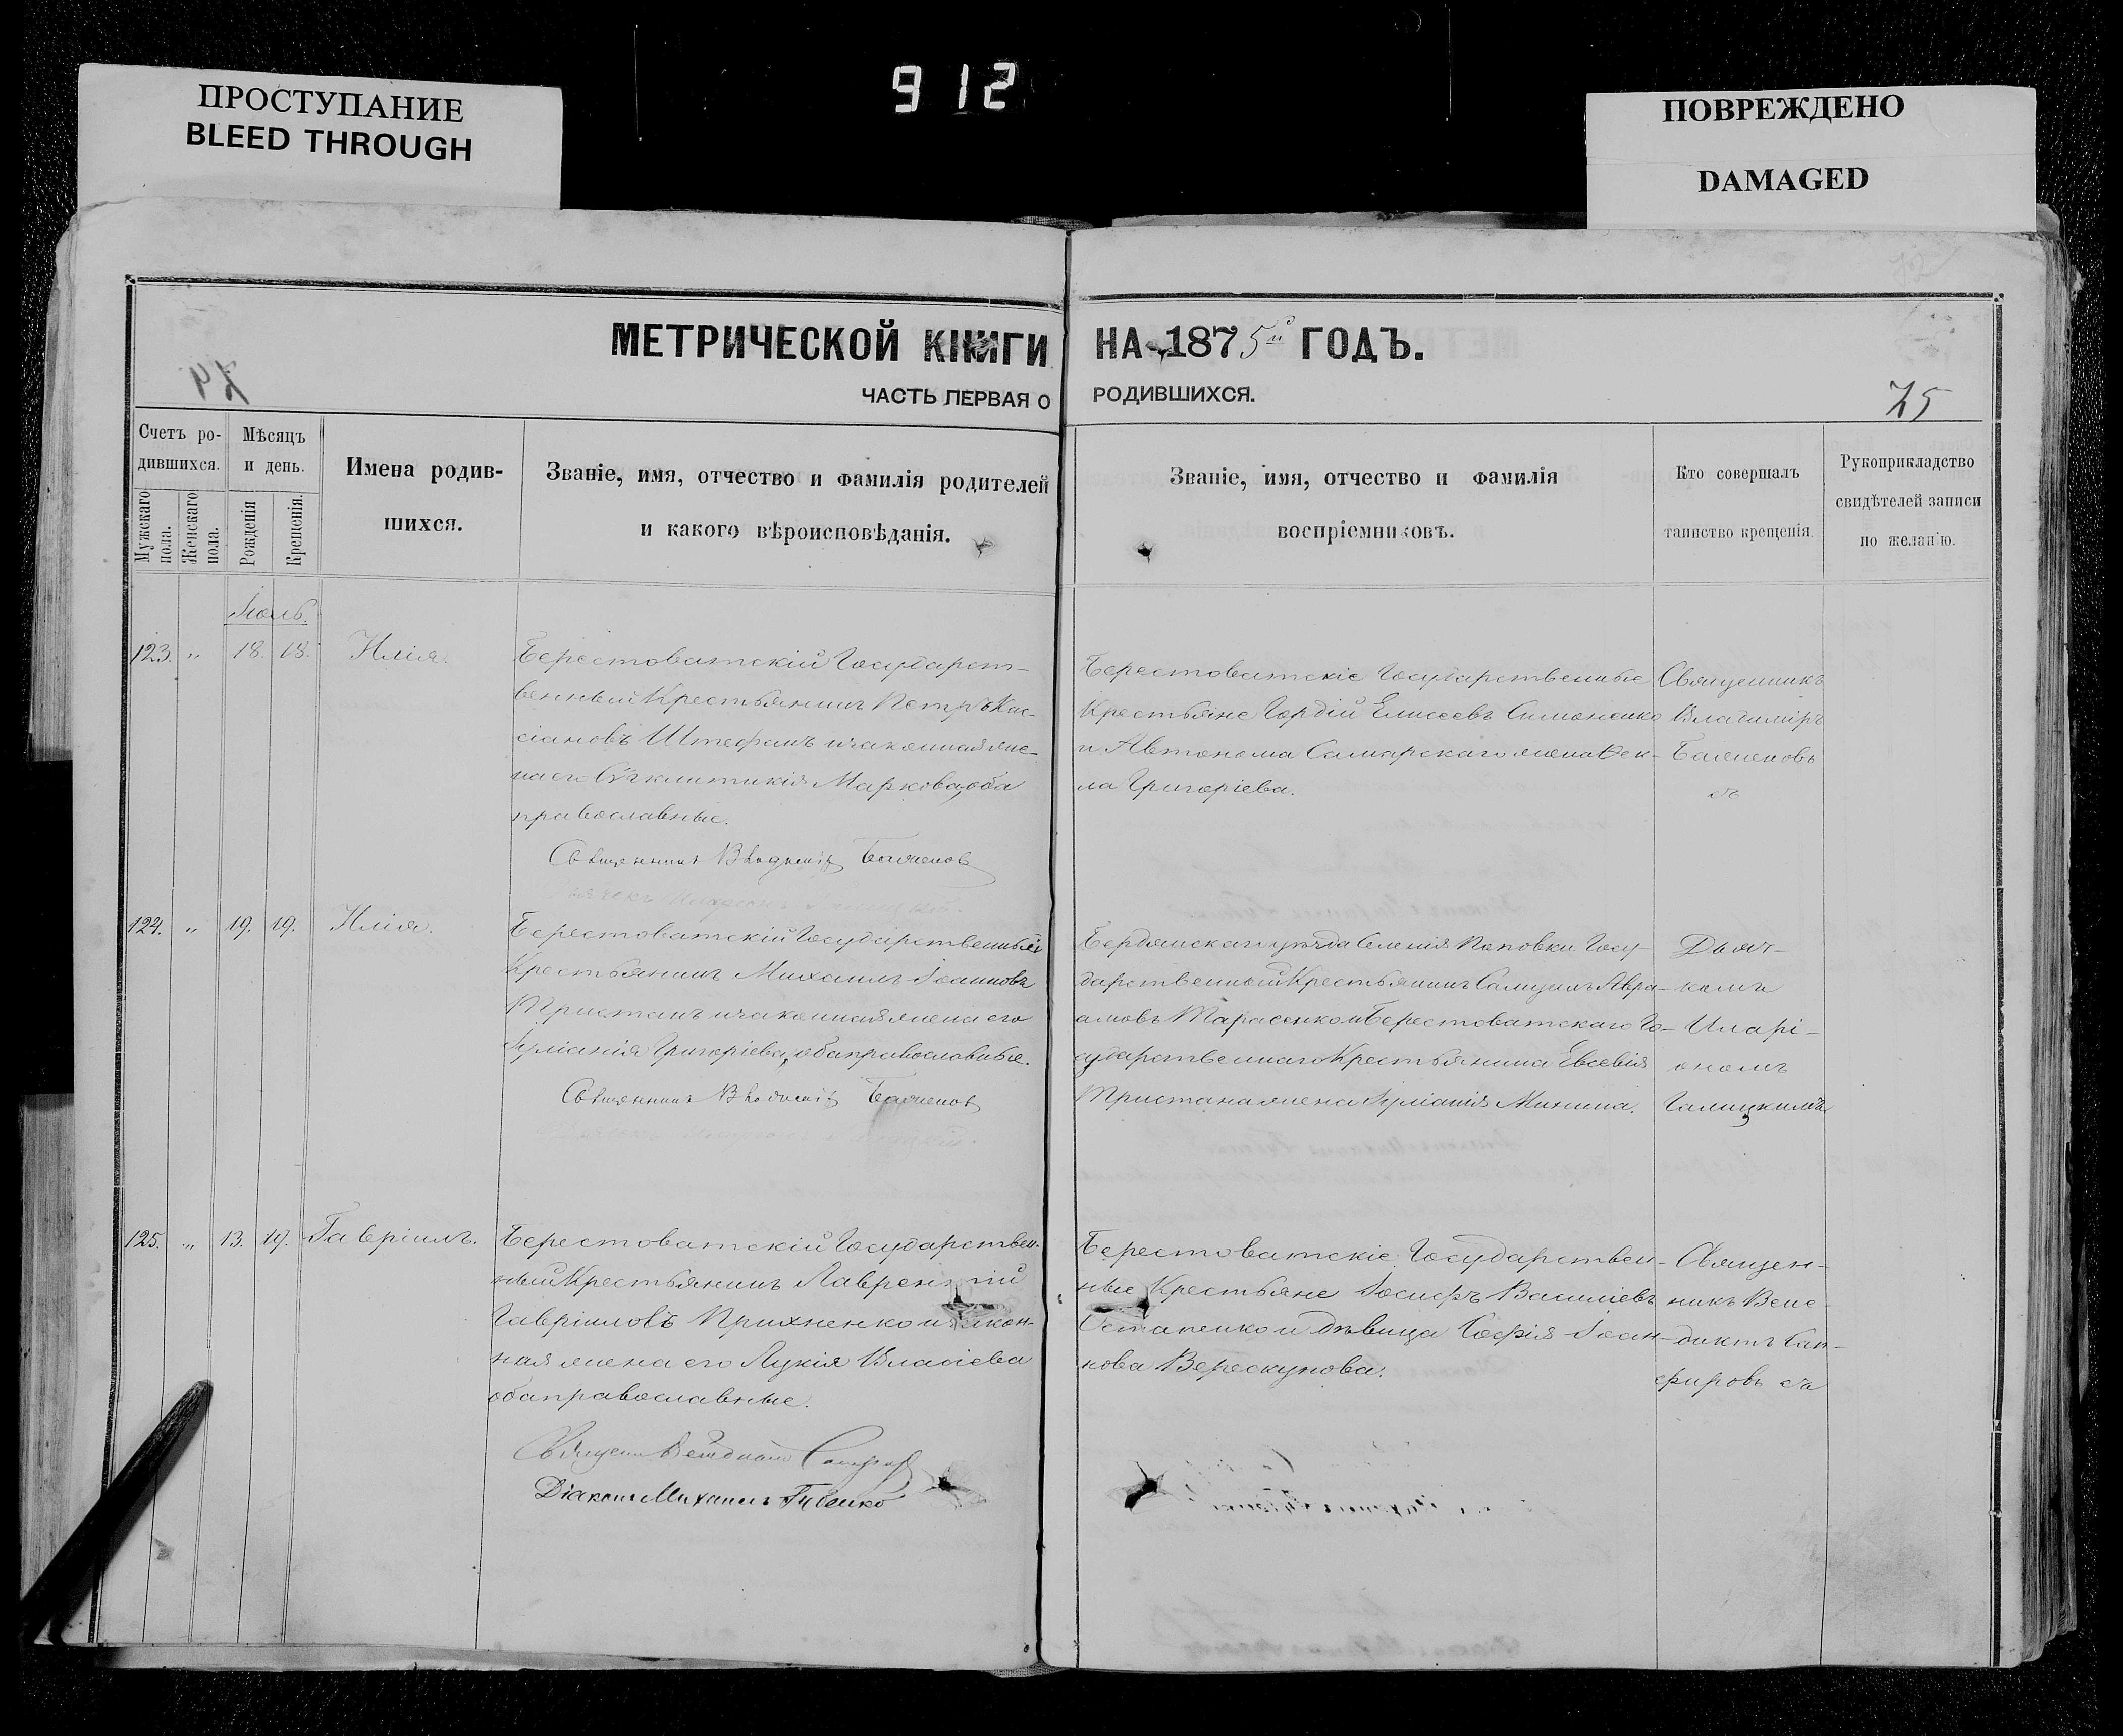 912
ПРОСТУПАНИЕ
BLEED THROUGH
ПОВРЕЖДЕНО
DAMAGED
МЕТРИЧЕСКОЙ КНИГИ НА 1875й ГОДЪ.
ЧАСТЬ ПЕРВАЯ О РОДИВШИХСЯ.
75
Счетъ ро-
дившихся.
Мужскаго
пола.
Женскаго
пола.
Мѣсяцъ
и день.
Рожденія
Крещенія.
Имена родив-
шихся.
Званіе, имя, отчество и фамилія родителей
и какого вѣроисповѣданія.
Званіе, имя, отчество и фамилія
воспріемниковъ.
Кто совершалъ
таинство крещенія.
Рукоприкладство
свидѣтелей записи
по желанію.
Іюль.
123. " 18. 18. Илія.
Берестоватскій Государст-
венный Крестьянинъ Петръ Кас-
сіановъ Штефанъ и законная же-
на его Сѵгклитикія Маркова, оба
православные.
Священникъ Владиміръ Баженовъ
Берестоватскіе Государственные
Крестьяне Гордій Елисеевъ Симоненко
и Автонома Самарскаго жена Фек-
ла Григоріева.
Священникъ
Владиміръ
Баженовъ
съ
124. " 19. 19. Илія.
Берестоватскій Государственный
Крестьянинъ Михаилъ Іоанновъ
Тристанъ и законная жена его
Іуліанія Григоріева, оба православные.
Священникъ Владиміръ Баженовъ
Бердянскаго уѣзда Селенія Поповки Госу-
дарственный Крестьянинъ Самуилъ Авра-
амовъ Тарасенко и Берестоватскаго Го-
сударственнаго Крестьянина Евсевія
Тристана жена Іуліанія Минина.
Дьяч-
комъ
Иларі-
ономъ
Галицкимъ
125. " 13. 19. Гавріилъ.
Берестоватскій Государствен-
ный Крестьянинъ Лаврентій
Гавріиловъ Прихненко и закон-
ная жена его Лукія Власіева
оба православные.
Діаконъ Михаилъ Губенко
Берестоватскіе Государствен-
ные Крестьяне Іосифъ Василіевъ
Остапенко и дѣвица Софія Іоан-
нова Верескунова.
Священ-
никъ Вене-
диктъ Сап-
фировъ съ